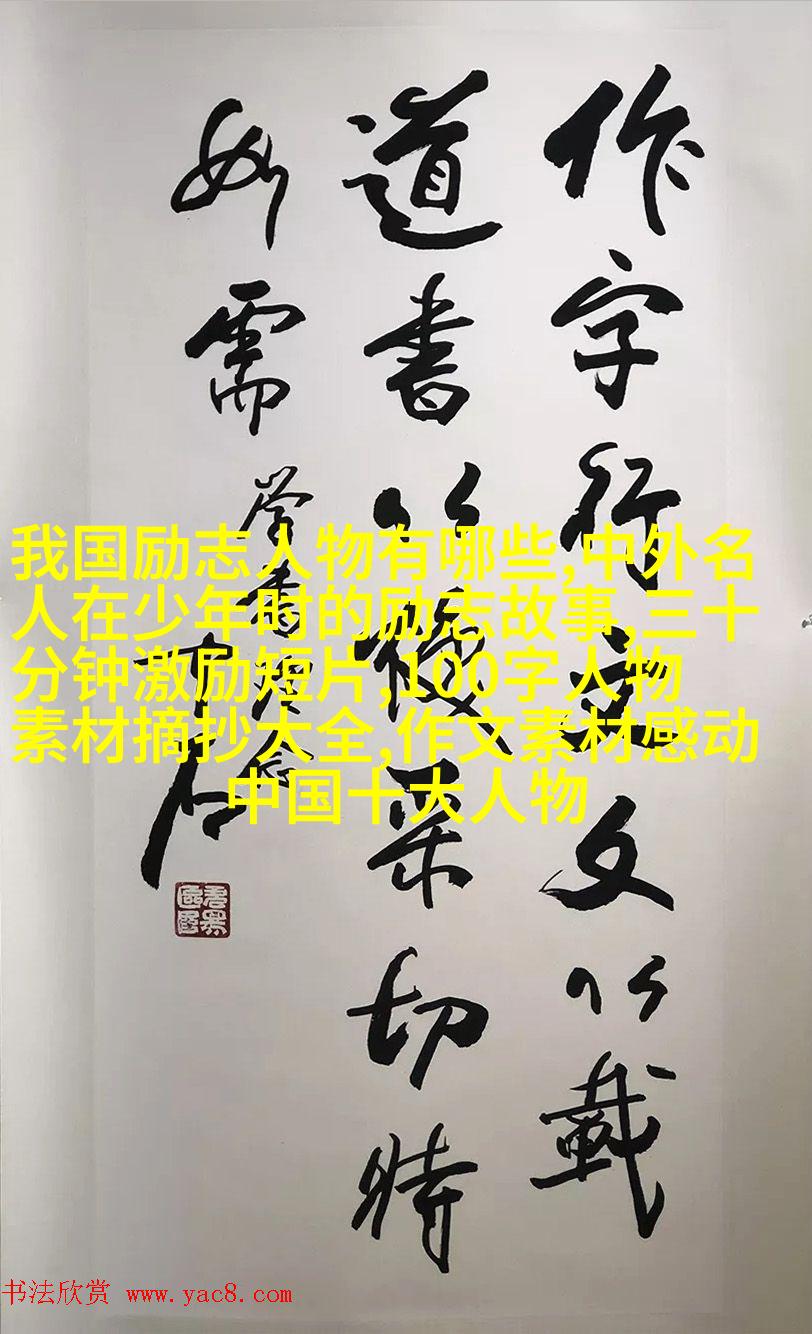 作字行文文以載
道書以煥采切時
如需
學書理念
中石
我国励志人物有哪些,中外名
人在少年时的励志故事,三十
分钟激励短片,100字人物
素材摘抄大全,作文素材感动
中国十大人物
书法欣赏 www.yac8.com